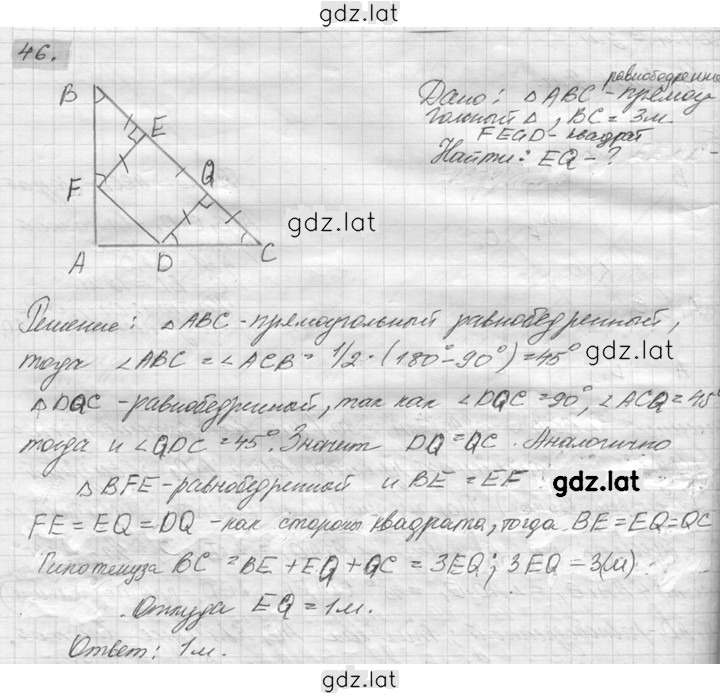 gdz.lat
46.
B
E
F
Q
A
D
C
равнобедренный
Дано: △ABC - прямоу
гольный △, BC = 3м
FEQD - квадрат
Найти: EQ - ?
gdz.lat
Решение: △ABC - прямоугольный равнобедренный,
тогда ∠ABC = ∠ACB = 1/2 · (180° - 90°) = 45°
△DQC - равнобедренный, так как ∠DQC = 90°, ∠ACQ = 45°
тогда и ∠QDC = 45°. Значит DQ = QC. Аналогично
△BFE - равнобедренной и BE = EF
gdz.lat
FE = EQ = DQ - как стороны квадрата, тогда BE = EQ = QC
Гипотенуза BC = BE + EQ + QC = 3EQ; 3EQ = 3(м)
Откуда EQ = 1м.
Ответ: 1м.
gdz.lat